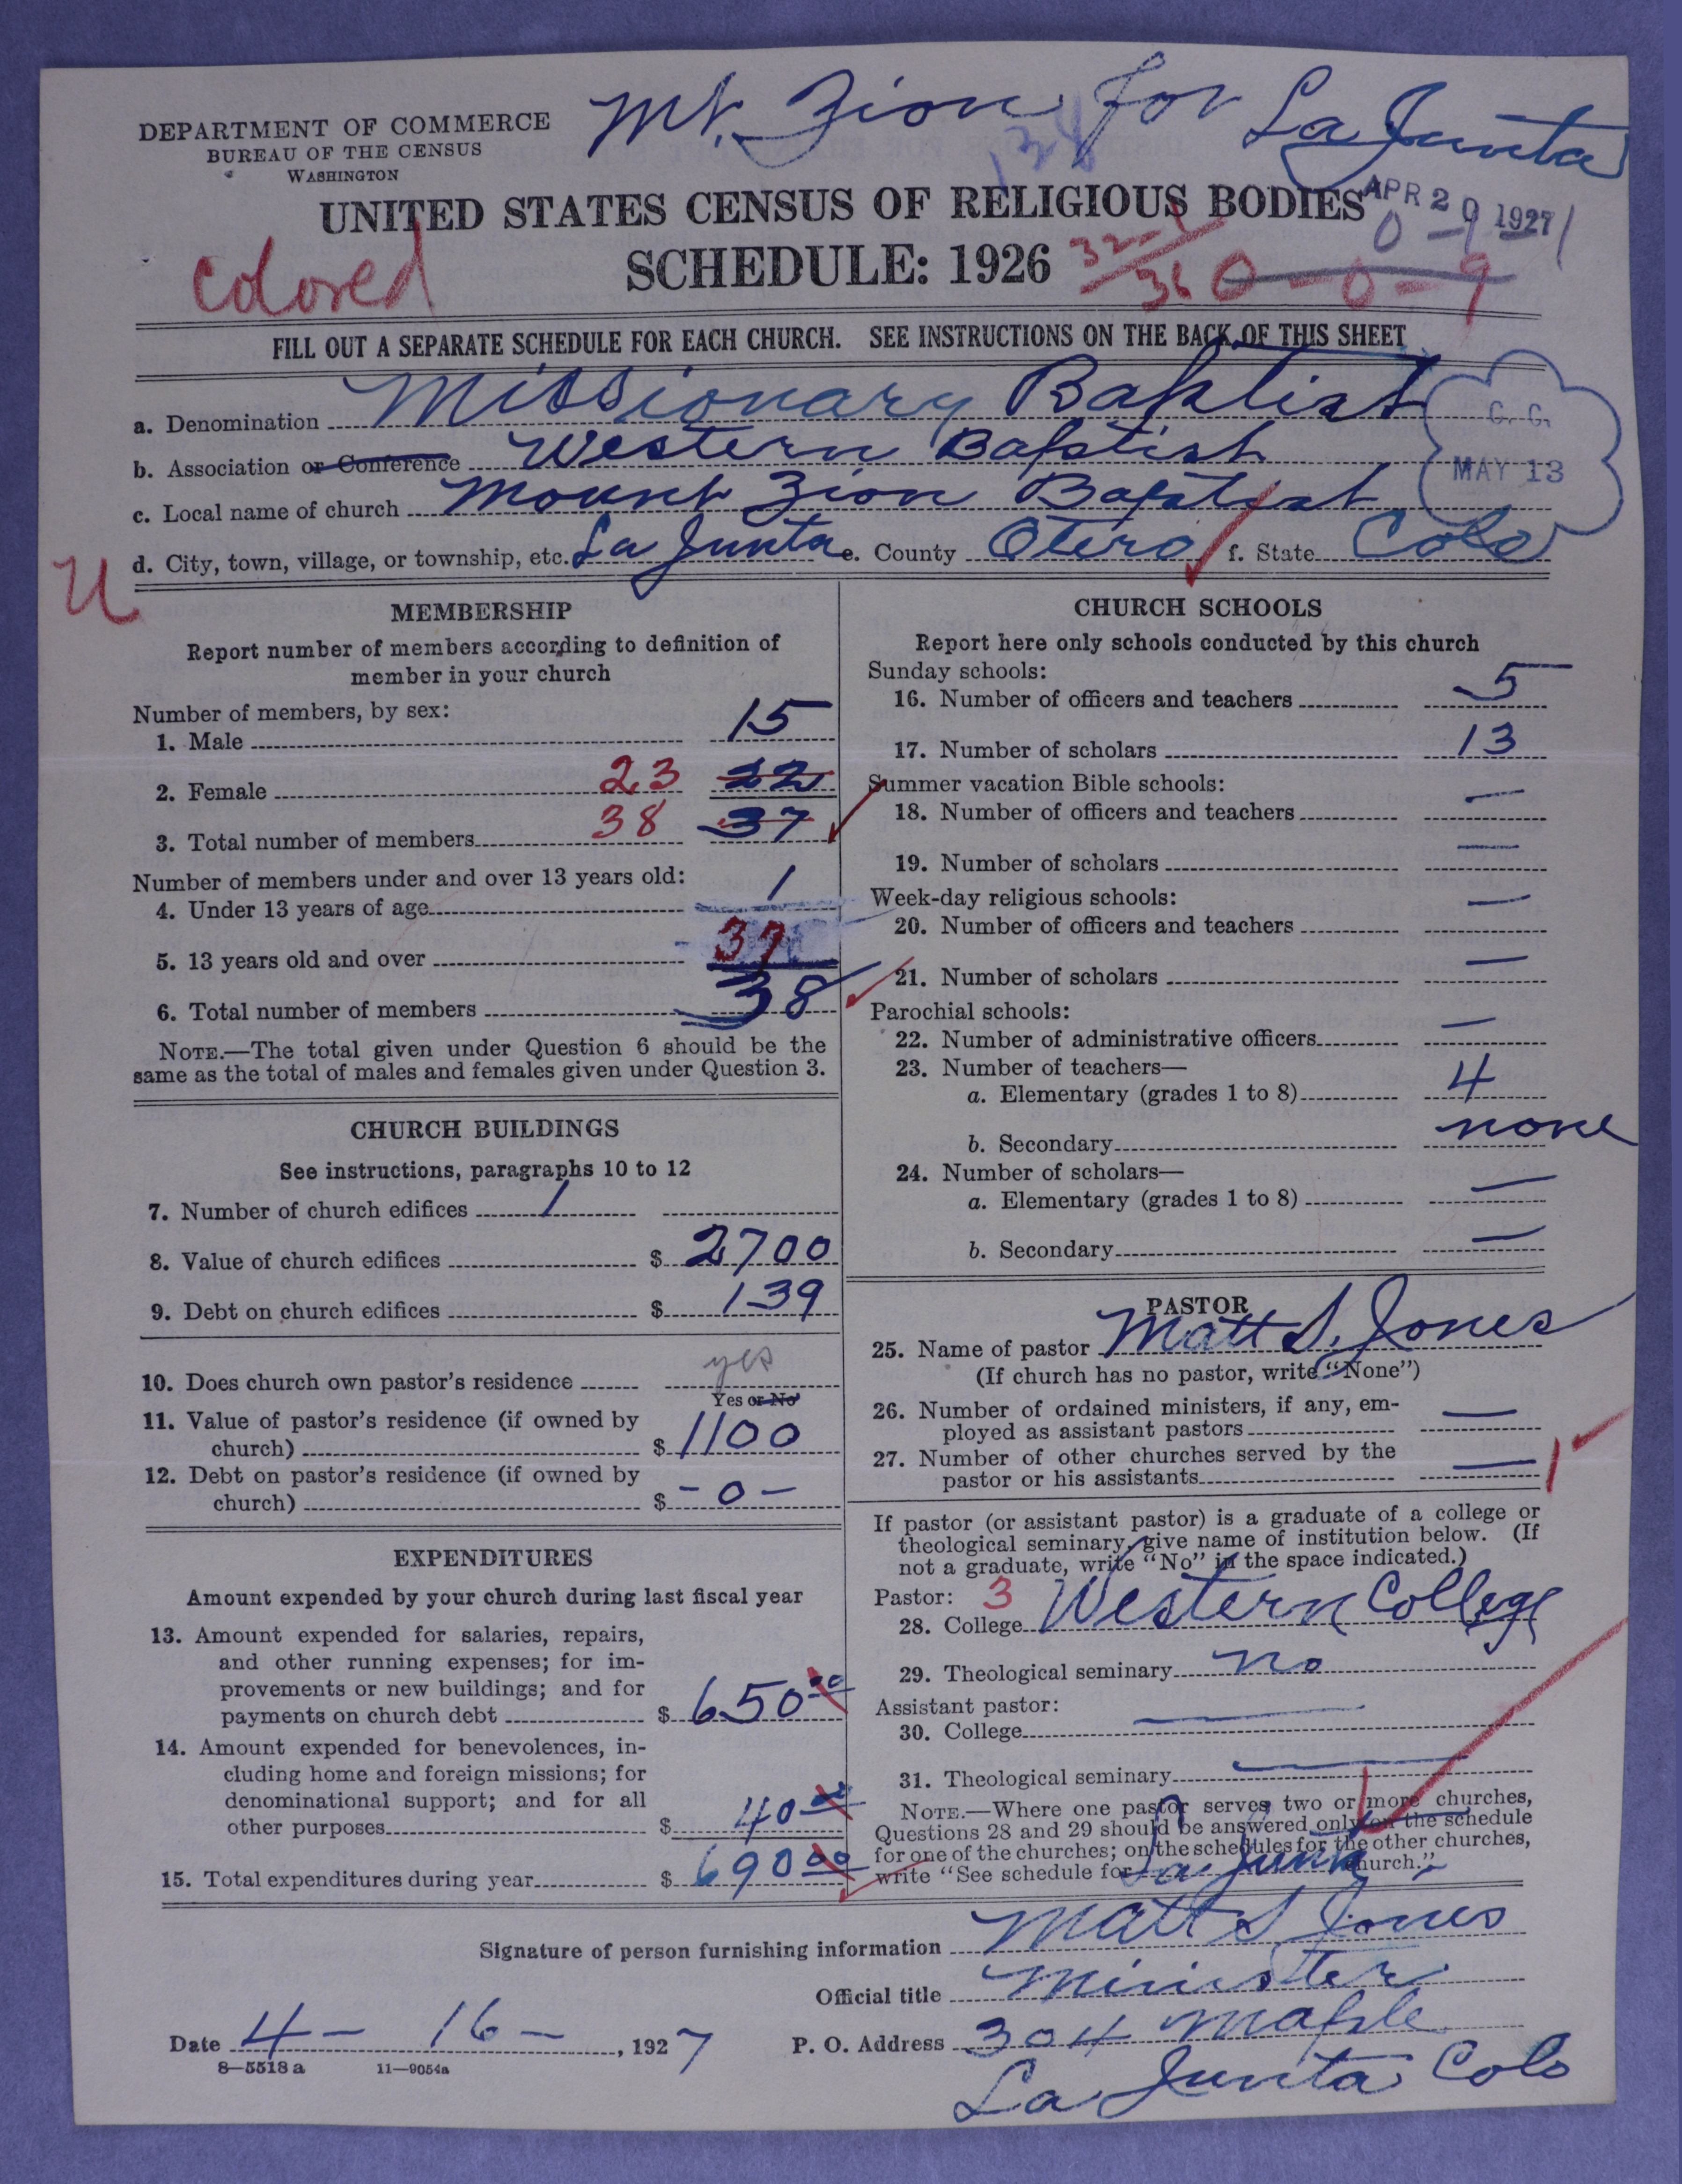 Mt. Zion for La Junta
DEPARTMENT OF COMMERCE
BUREAU OF THE CENSUS
WASHINGTON
UNITED STATES CENSUS OF RELIGIOUS BODIES
APR 20 1927
SCHEDULE: 1926
0-0-9
colored
FILL OUT A SEPARATE SCHEDULE FOR EACH CHURCH. SEE INSTRUCTIONS ON THE BACK OF THIS SHEET
a. Denomination Missionary Baptist
b. Association or Conference Western Baptist
C. G.
MAY 13
c. Local name of church Mount Zion Baptist
d. City, town, village, or township, etc. La Junta e. County Otero f. State Colo
U
MEMBERSHIP
Report number of members according to definition of
member in your church
Number of members, by sex:
1. Male 15
2. Female 23 22
3. Total number of members 38 37
Number of members under and over 13 years old:
4. Under 13 years of age 1
5. 13 years old and over 37
6. Total number of members 38
NOTE.—The total given under Question 6 should be the
same as the total of males and females given under Question 3.
CHURCH BUILDINGS
See instructions, paragraphs 10 to 12
7. Number of church edifices 1
8. Value of church edifices $ 2700
9. Debt on church edifices $ 139
10. Does church own pastor's residence yes
Yes or No
11. Value of pastor's residence (if owned by
church) $ 1100
12. Debt on pastor's residence (if owned by
church) $ -0-
EXPENDITURES
Amount expended by your church during last fiscal year
13. Amount expended for salaries, repairs,
and other running expenses; for im-
provements or new buildings; and for
payments on church debt $ 650 00
14. Amount expended for benevolences, in-
cluding home and foreign missions; for
denominational support; and for all
other purposes $ 40 00
15. Total expenditures during year $ 690 00
CHURCH SCHOOLS
Report here only schools conducted by this church
Sunday schools:
16. Number of officers and teachers 5
17. Number of scholars 13
Summer vacation Bible schools:
18. Number of officers and teachers —
19. Number of scholars —
Week-day religious schools:
20. Number of officers and teachers —
21. Number of scholars —
Parochial schools:
22. Number of administrative officers —
23. Number of teachers—
a. Elementary (grades 1 to 8) 4
b. Secondary none
24. Number of scholars—
a. Elementary (grades 1 to 8) —
b. Secondary —
PASTOR
25. Name of pastor Matt S. Jones
(If church has no pastor, write "None")
26. Number of ordained ministers, if any, em-
ployed as assistant pastors —
27. Number of other churches served by the
pastor or his assistants — 1
If pastor (or assistant pastor) is a graduate of a college or
theological seminary, give name of institution below. (If
not a graduate, write "No" in the space indicated.)
Pastor: 3
28. College Western College
29. Theological seminary no
Assistant pastor:
30. College —
31. Theological seminary —
NOTE.—Where one pastor serves two or more churches,
Questions 28 and 29 should be answered only on the schedule
for one of the churches; on the schedules for the other churches,
write "See schedule for La Junta church."
Signature of person furnishing information Matt S Jones
Official title Minister
Date 4-16-, 1927 P. O. Address 304 Maple
8—5518 a 11—9054a
La Junta Colo